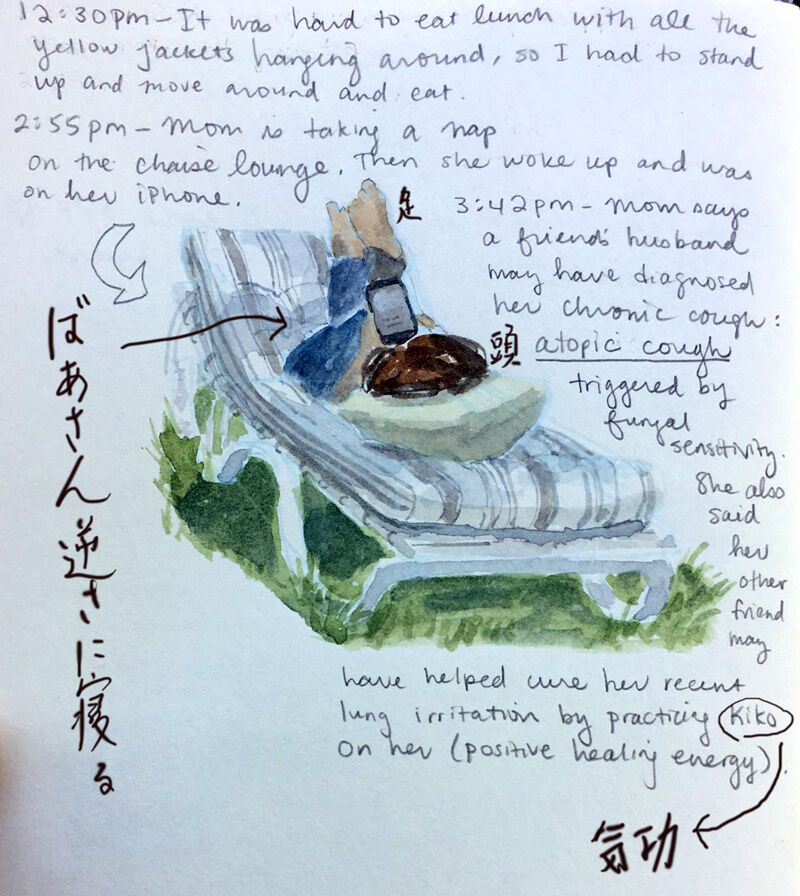 12:30pm – It was hard to eat lunch with all the
yellow jackets hanging around, so I had to stand
up and move around and eat.
2:55pm – Mom is taking a nap
on the chaise lounge. Then she woke up and was
on her iPhone.
足
3:42pm – Mom says
a friend's husband
may have diagnosed
her chronic cough:
頭
atopic cough
triggered by
fungal
sensitivity.
She also
said
her
other
friend
may
have helped cure her recent
lung irritation by practicing Kiko
on her (positive healing energy).
気功
ばあさん逆さに寝る